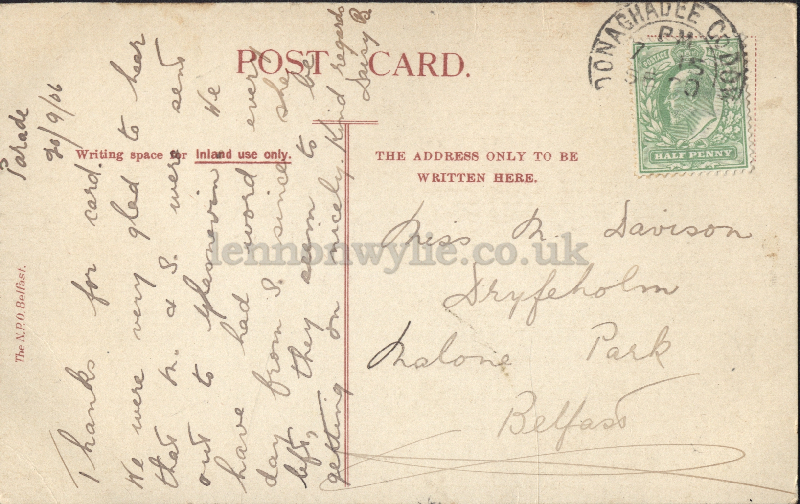 POST CARD.
Writing space for Inland use only.
THE ADDRESS ONLY TO BE
WRITTEN HERE.
The N.P.O. Belfast.
DONAGHADEE
PM
15
HALF PENNY
Parade
20/9/06
Thanks for card.
We were very glad to hear
that M. & S. were sent
out to Glasnevin We
have had word every
day from S. since she
left, they seem to be
getting on nicely. Kind regards
Daisy B
Miss M. Davison
Dryfeholm
Malone Park
Belfast
lennonwylie.co.uk